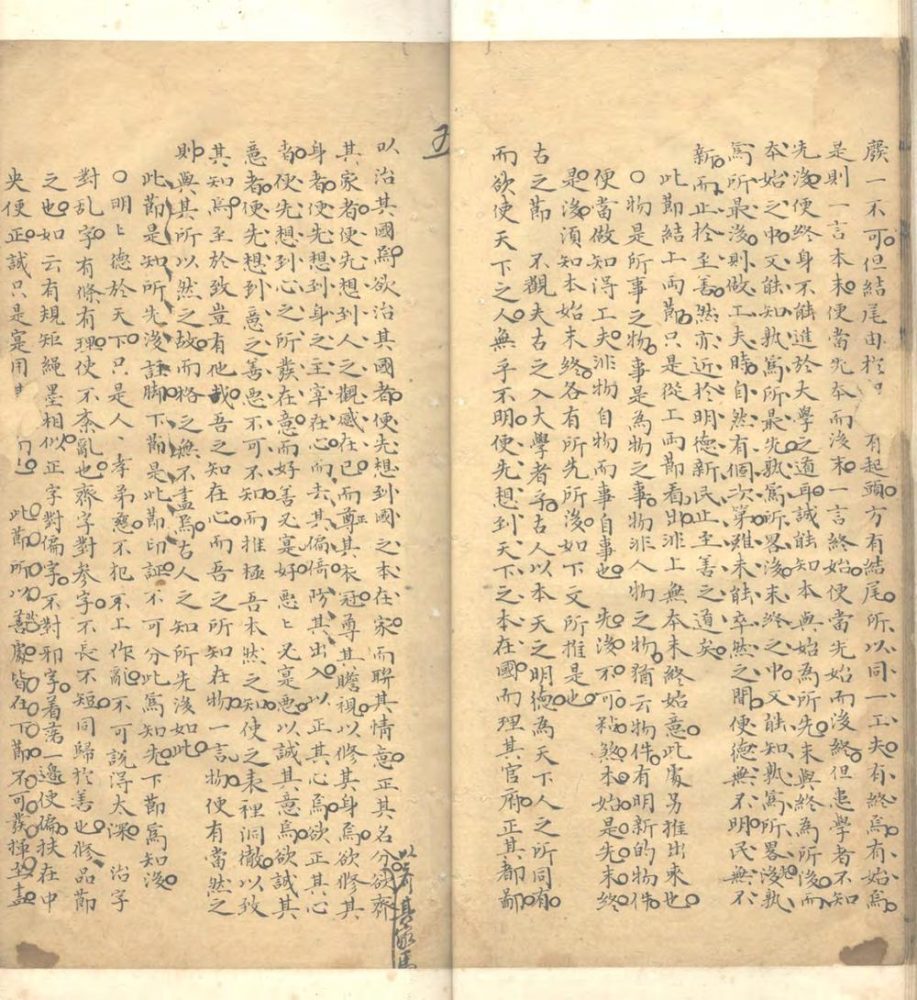 廢一不可但結尾由於 有起頭方有結尾所以同一工夫有終焉有始焉
是則一言本末便當先本而後末一言終始便當先始而後終但患學者不知
先後便終身不能進於大學之道耳誠能知本與始為所先末與終為所後而
本始之中又能知孰為所最先孰為所畧後末終之中又能知孰為所畧後孰
為所最後則做工夫時自然有個次第雖未能卒然之間便德無不明民無不
新而止於至善然亦近於明德新民止至善之道矣
此節結上兩節只是從上兩節看出非上無本末終始意此處另推出來也
○物是所事之物事是為物之事物非人物之物猶云物件有明新的物件
便當做知得工夫非物自物而事自事也 先後不可粘煞本始是先末終
是後須知本始末終各有所先所後如下文所推是也
古之節 不觀夫古之入大學者乎古人以本天之明德為天下人之所同有
而欲使天下之人無乎不明便先想到天下之本在國而理其官府正其都鄙
五
以治其國焉欲治其國者便先想到國之本在家而聯其情意正其名分欲齊
以齊其家焉
其家者便先想到人之觀感在己而正其衣冠尊其瞻視以修其身焉欲修其
身者便先想到身之主宰在心而去其偏倚防其出入以正其心焉欲正其心
者便先想到心之所發在意而好善又寔好惡惡又寔惡以誠其意焉欲誠其
意者便先想到意之善惡不可不知而推極吾本然之知使之表裡洞徹以致
其知焉至於致豈有他哉吾之知在心而吾之所知在物一言物便有當然之
則與其所以然之故而格之無不盡焉古人之知所先後如此
此節是知所先後註脚下節是此節印証不可分此為知先下節為知後
○明明德於天下只是人人孝弟慈不犯上作亂不可說得太深 治字
對乱字有條有理使不紊亂也齊字對参字不長不短同歸於善也修品節
之也如云有規矩繩墨相似正字對偏字不對邪字着落一邉便偏扶在中
央便正誠只是寔用其 此節所以善處皆在下節不可發揮至盡